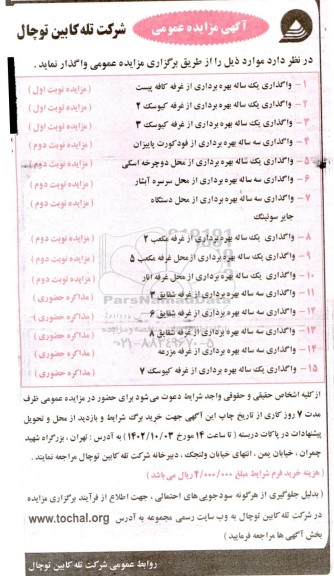 آگهی مزایده عمومی
شرکت تله کابین توچال
در نظر دارد موارد ذیل را از طریق برگزاری مزایده عمومی واگذار نماید .
۱- واگذاری یک ساله بهره برداری از غرفه کافه پیست ( مزایده نوبت اول )
۲- واگذاری یک ساله بهره برداری از غرفه کیوسک ۲ ( مزایده نوبت اول )
۳- واگذاری یک ساله بهره برداری از غرفه کیوسک ۳ ( مزایده نوبت اول )
۴- واگذاری سه ساله بهره برداری از فودکورت پاییزان ( مزایده نوبت دوم )
۵- واگذاری یک ساله بهره برداری از محل دوچرخه اسکی ( مزایده نوبت دوم )
۶- واگذاری سه ساله بهره برداری از محل سرسره آبشار ( مزایده نوبت دوم )
۷- واگذاری سه ساله بهره برداری از محل دستگاه ( مزایده نوبت دوم )
جایر سوئینگ
۸- واگذاری یک ساله بهره برداری از غرفه مکعب ۲ ( مزایده نوبت دوم )
۹- واگذاری یک ساله بهره برداری از محل غرفه مکعب ۵ ( مزایده نوبت دوم )
۱۰- واگذاری یک ساله بهره برداری از محل غرفه انار ( مزایده نوبت دوم )
۱۱- واگذاری سه ساله بهره برداری از غرفه شقایق ۳ ( مذاکره حضوری )
۱۲- واگذاری سه ساله بهره برداری از غرفه شقایق ۶ ( مذاکره حضوری )
۱۳- واگذاری سه ساله بهره برداری از غرفه شقایق ۸ ( مذاکره حضوری )
۱۴- واگذاری سه ساله بهره برداری از غرفه مزرعه ( مذاکره حضوری )
۱۵- واگذاری یک ساله بهره برداری از غرفه کیوسک ۷ ( مذاکره حضوری )
ParsNamadData
۰۲۱-۸۸۳۴۹۶۷۰-۵
از کلیه اشخاص حقیقی و حقوقی واجد شرایط دعوت می شود برای حضور در مزایده عمومی ظرف
مدت ۷ روز کاری از تاریخ چاپ این آگهی جهت خرید برگ شرایط و بازدید از محل و تحویل
پیشنهادات در پاکات دربسته ( تا ساعت ۱۴ مورخ ۱۴۰۲/۱۰/۰۳ ) به آدرس : تهران ، بزرگراه شهید
چمران ، خیابان یمن ، انتهای خیابان ولنجک ، دبیرخانه شرکت تله کابین توچال مراجعه نمایند .
( هزینه خرید فرم شرایط مبلغ ۲/۰۰۰/۰۰۰ ریال می باشد )
( بدلیل جلوگیری از هرگونه سودجویی‌های احتمالی ، جهت اطلاع از فرآیند برگزاری مزایده
در شرکت تله کابین توچال به وب سایت رسمی مجموعه به آدرس www.tochal.org
بخش آگهی ها مراجعه فرمایید )
روابط عمومی شرکت تله کابین توچال